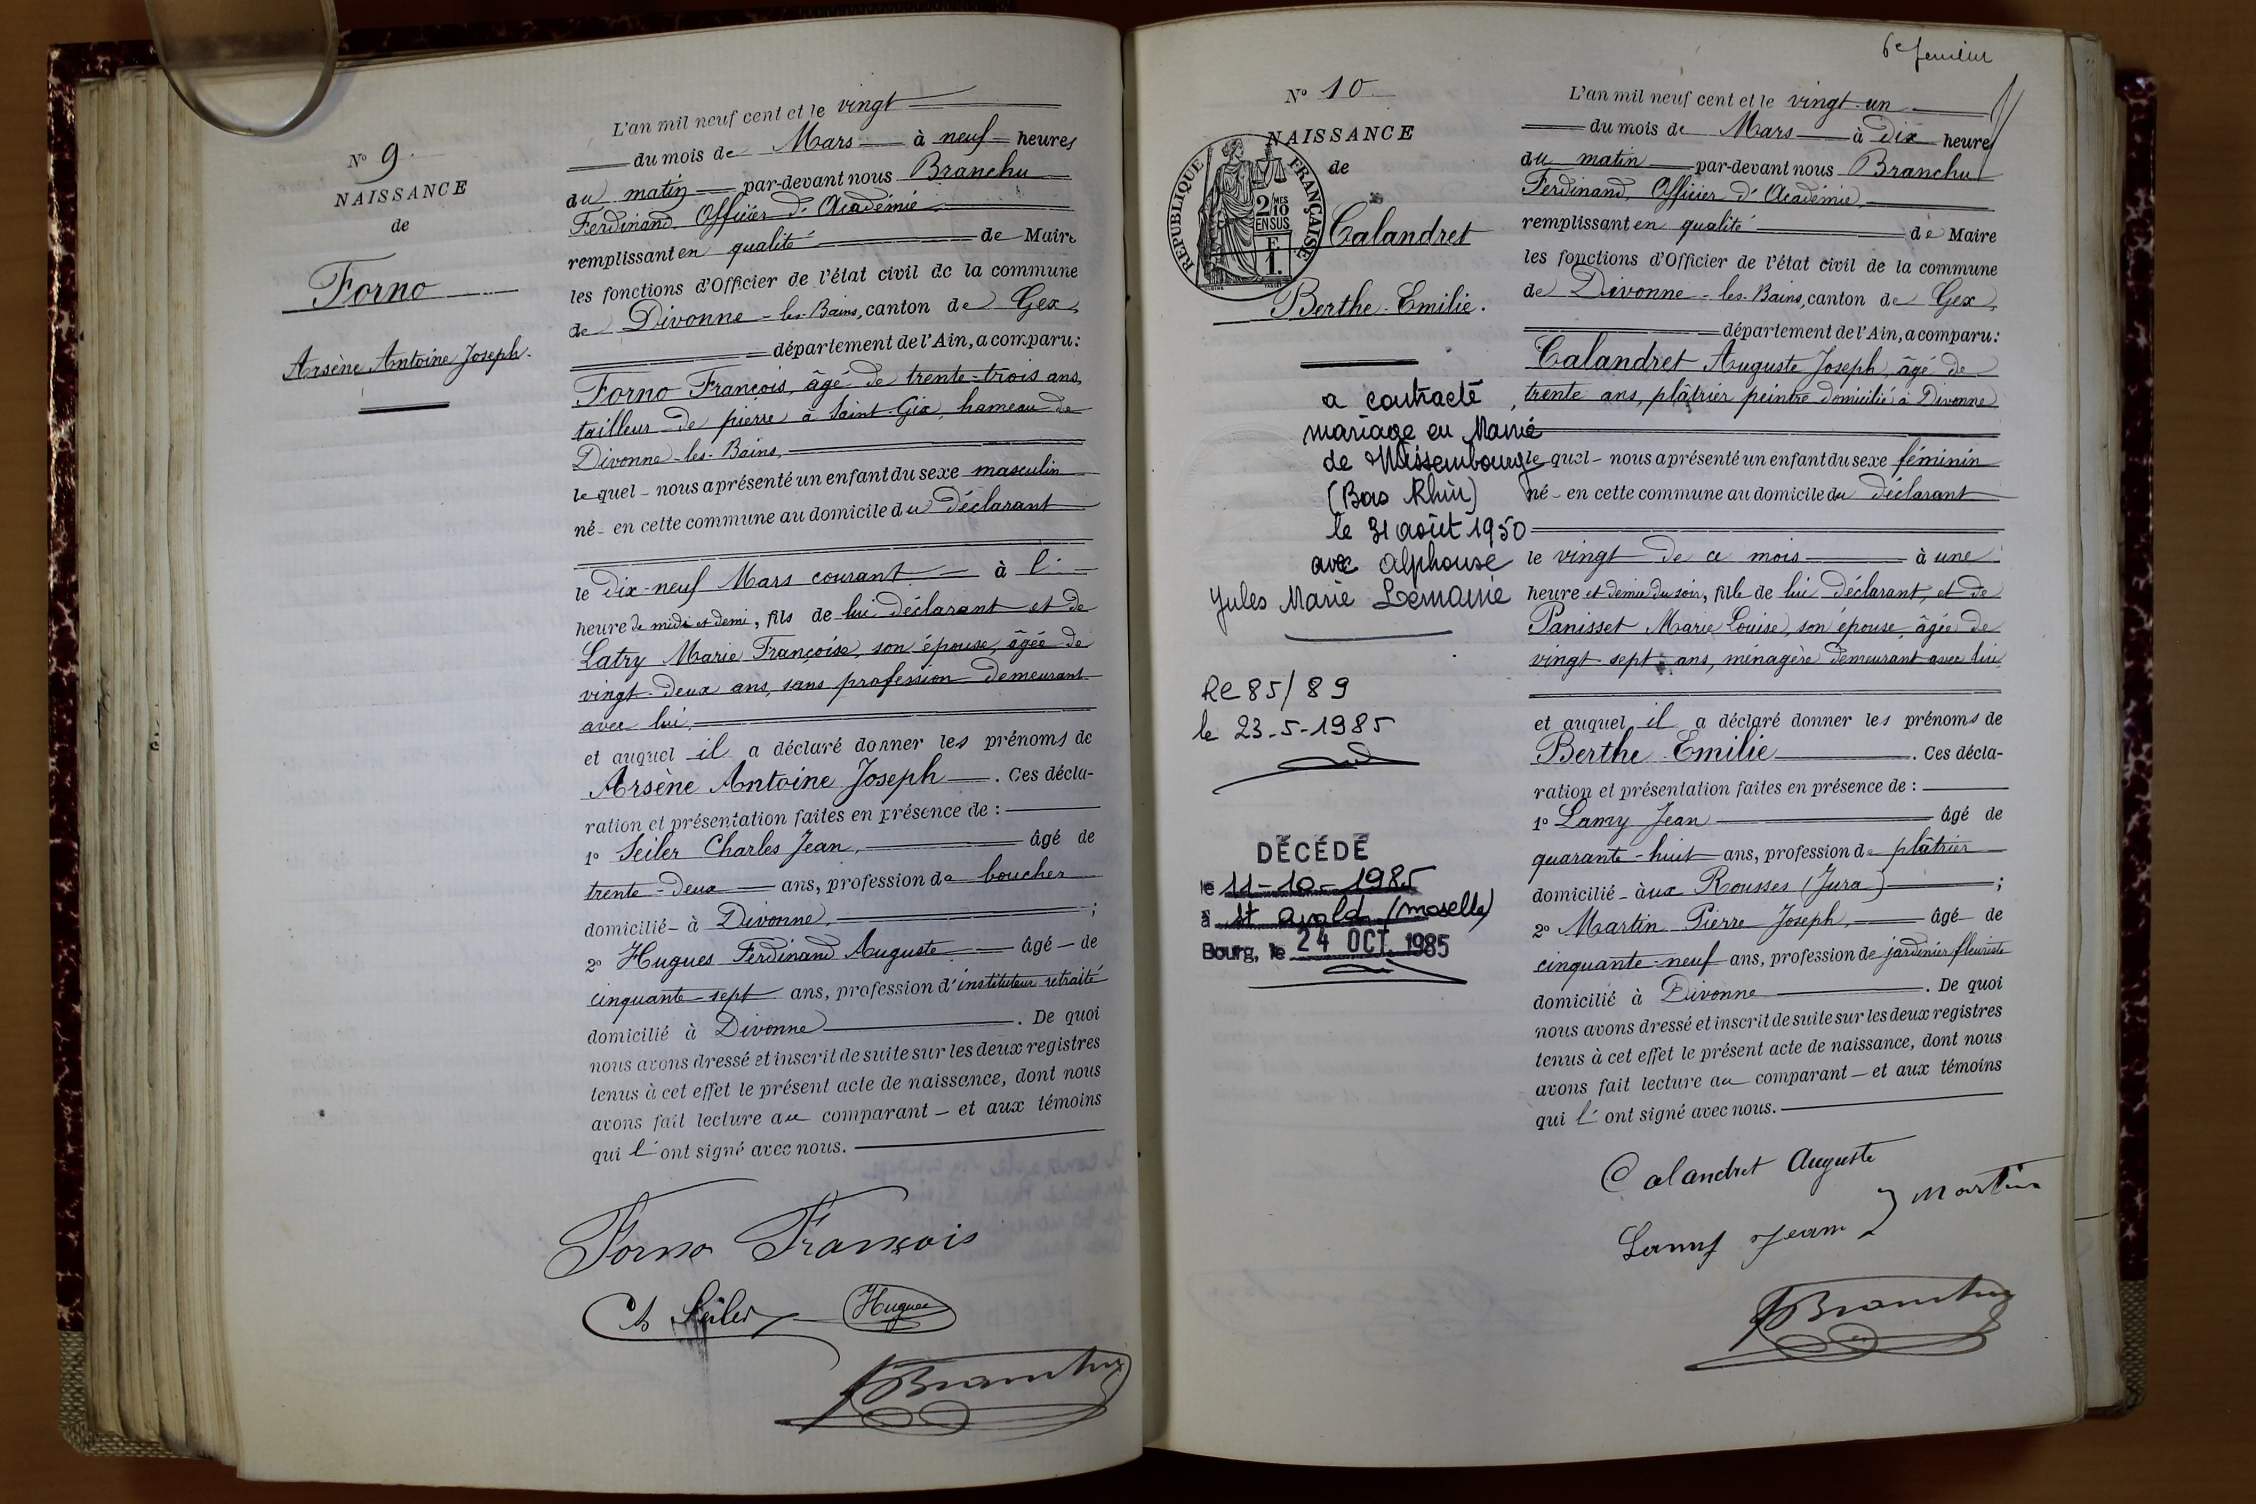 L'an mil neuf cent et le vingt
N° 9
du mois de Mars à neuf heures
NAISSANCE
du matin par-devant nous Branchu
de
Ferdinand, Officier d'Académie
remplissant en qualité de Maire
Forno
les fonctions d'Officier de l'état civil de la commune
de Divonne-les-Bains, canton de Gex,
Arsène Antoine Joseph.
département de l'Ain, a comparu:
Forno François, âgé de trente-trois ans,
tailleur de pierre à Saint-Gix, hameau de
Divonne-les-Bains,
lequel nous a présenté un enfant du sexe masculin
né en cette commune au domicile du déclarant
le dix-neuf Mars courant à l'
heure de midi et demi, fils de lui déclarant et de
Latry Marie Françoise, son épouse, âgée de
vingt-deux ans, sans profession demeurant
avec lui,
et auquel il a déclaré donner les prénoms de
Arsène Antoine Joseph. Ces décla-
ration et présentation faites en présence de :
1° Seiler Charles Jean, âgé de
trente-deux ans, profession de boucher
domicilié à Divonne, ;
2° Hugues Ferdinand Auguste, âgé de
cinquante-sept ans, profession d'instituteur retraité
domicilié à Divonne. De quoi
nous avons dressé et inscrit de suite sur les deux registres
tenus à cet effet le présent acte de naissance, dont nous
avons fait lecture au comparant et aux témoins
qui l'ont signé avec nous.
Forno François
Ch Seiler Hugues
Branchu
6e feuillet
N° 10
NAISSANCE
de
RÉPUBLIQUE FRANÇAISE
2 MES
10
EN SUS
F.
1.
Calandret
Berthe-Emilie.
a contracté
mariage en Mairie
de Wissembourg
(Bas Rhin)
le 31 août 1950
avec Alphonse
Jules Marie Lemaire
Re 85/89
le 23-5-1985
DÉCÉDÉ
le 11-10-1985
à St Avold (Moselle)
Bourg, le 24 OCT. 1985
L'an mil neuf cent et le vingt-un
du mois de Mars à dix heures
du matin par-devant nous Branchu
Ferdinand, Officier d'Académie,
remplissant en qualité de Maire
les fonctions d'Officier de l'état civil de la commune
de Divonne-les-Bains, canton de Gex,
département de l'Ain, a comparu:
Calandret Auguste Joseph, âgé de
trente ans, plâtrier peintre domicilié à Divonne
lequel nous a présenté un enfant du sexe féminin
né en cette commune au domicile du déclarant
le vingt de ce mois à une
heure et demie du soir, fille de lui déclarant, et de
Panisset Marie Louise, son épouse, âgée de
vingt-sept ans, ménagère demeurant avec lui
et auquel il a déclaré donner les prénoms de
Berthe-Emilie. Ces décla-
ration et présentation faites en présence de :
1° Lamy Jean âgé de
quarante-huit ans, profession de plâtrier
domicilié aux Rousses (Jura) ;
2° Martin Pierre Joseph, âgé de
cinquante-neuf ans, profession de jardinier fleuriste
domicilié à Divonne. De quoi
nous avons dressé et inscrit de suite sur les deux registres
tenus à cet effet le présent acte de naissance, dont nous
avons fait lecture au comparant et aux témoins
qui l'ont signé avec nous.
Calandret Auguste
J Martin
Lamy Jean
Branchu